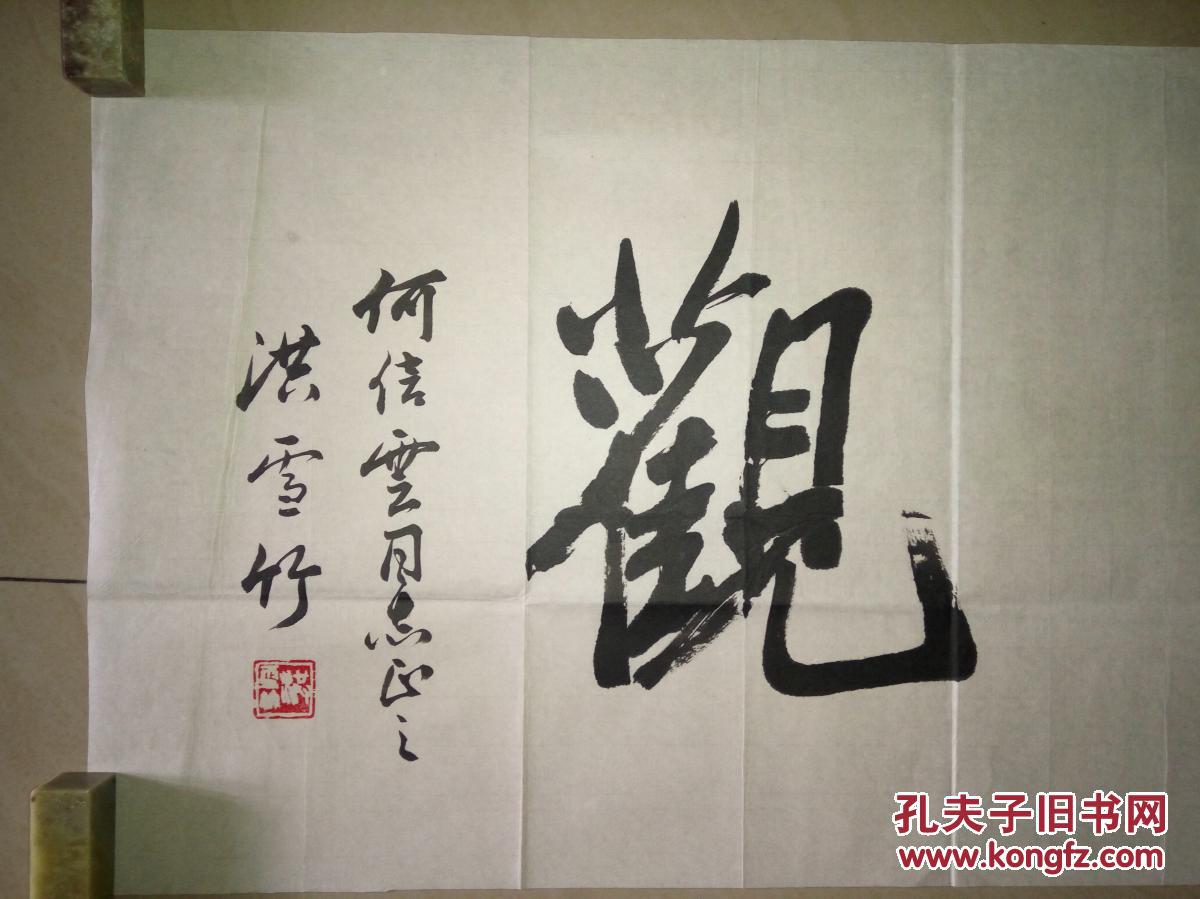 觀
何信雲同志正之
洪雪竹
孔夫子旧书网
www.kongfz.com